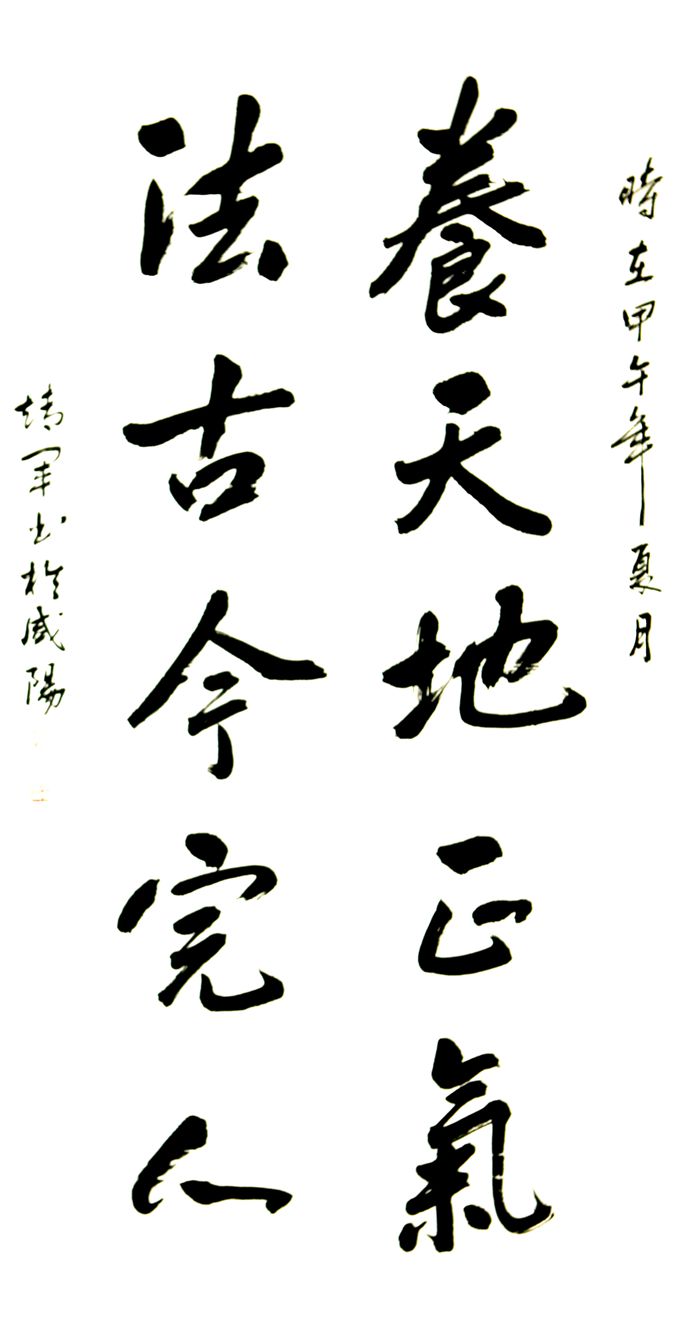 時在甲午年夏月
養天地正氣
法古今完人
靖军书於咸陽